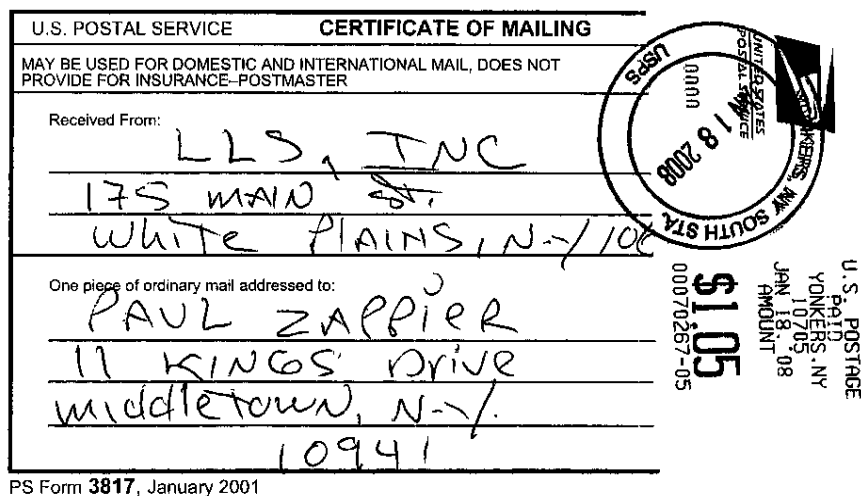 U.S. POSTAL SERVICE CERTIFICATE OF MAILING
MAY BE USED FOR DOMESTIC AND INTERNATIONAL MAIL, DOES NOT
PROVIDE FOR INSURANCE–POSTMASTER
Received From:
LLS, INC
175 MAIN St.
White PLAINS, N.Y 10
One piece of ordinary mail addressed to:
PAUL ZAPPIER
11 KINGS Drive
Middletown, N.Y.
10941
PS Form 3817, January 2001
UNITED STATES
POSTAL SERVICE
0000
USPS
JAN 18 2008
YONKERS, NY SOUTH STA.
U.S. POSTAGE
PAID
YONKERS.NY
10705
JAN 18, 08
AMOUNT
$1.05
00070267-05